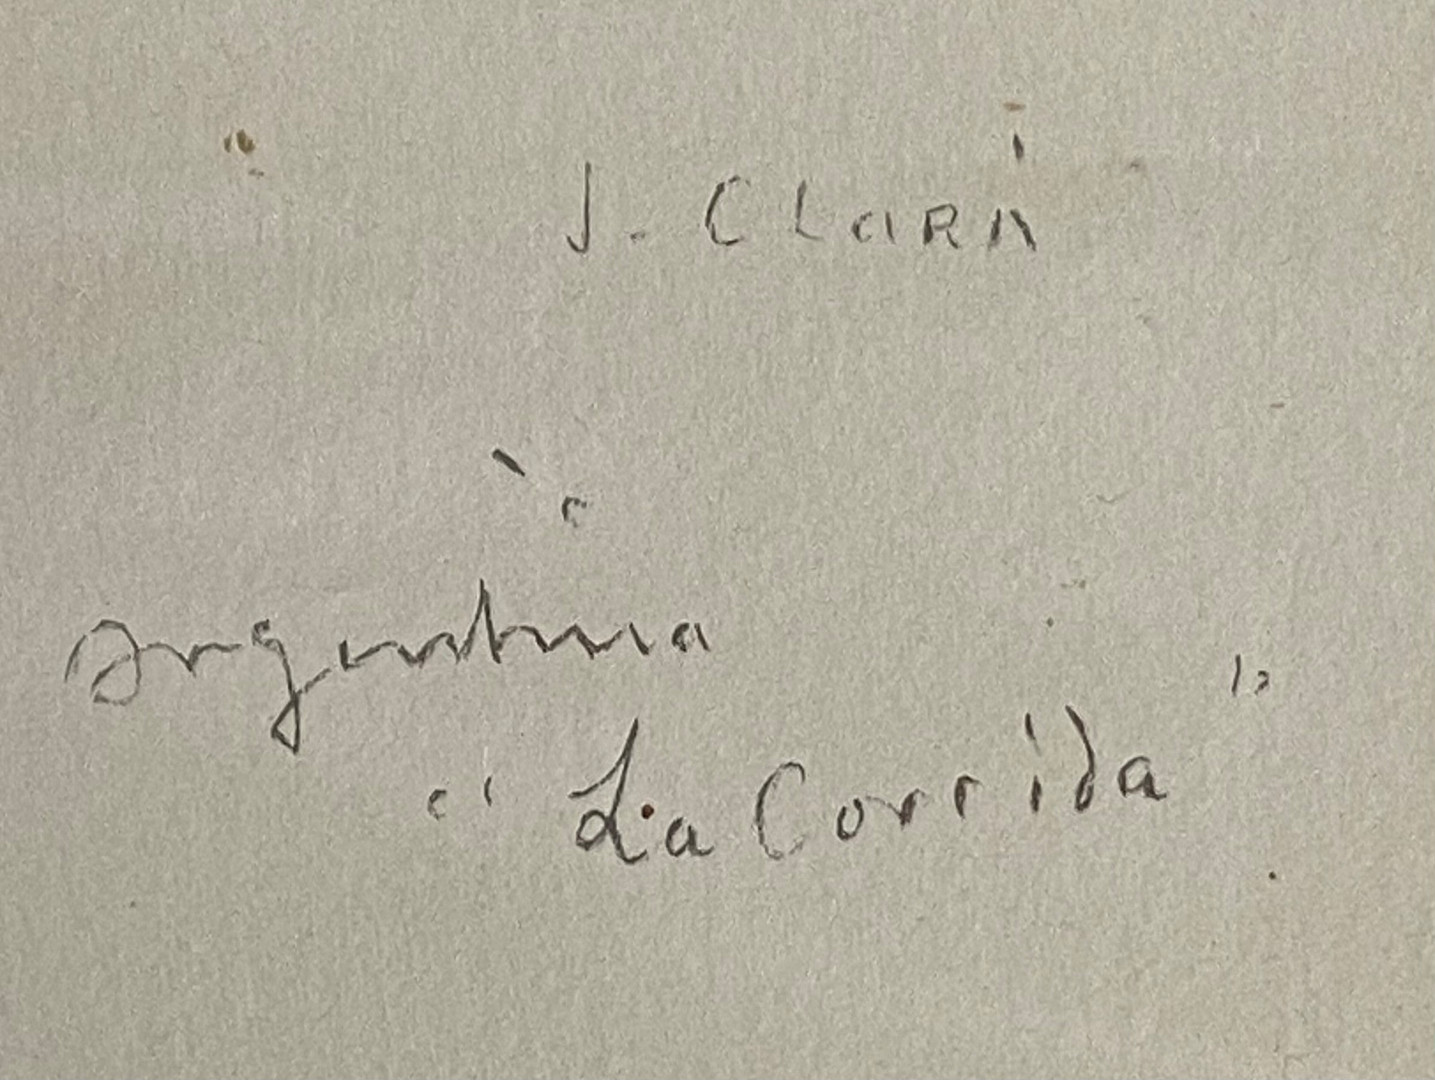 J. Clará
Argentina
"La Corrida"